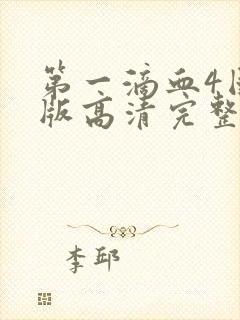 第一滴血4
版高清完整
李邱